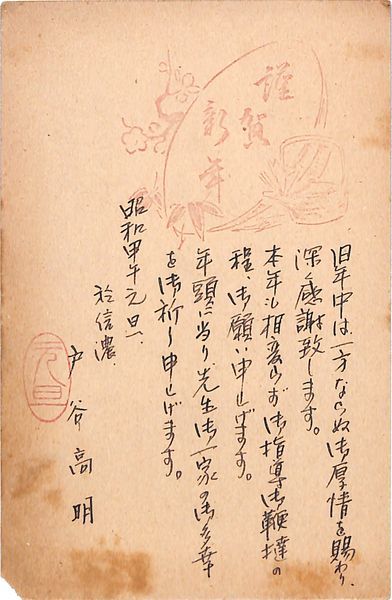 謹賀
新年
旧年中は一方ならぬ御厚情を賜わり、
深く感謝致します。
本年も相変らず御指導御鞭撻の
程、御願い申上げます。
年頭に当り、先生御一家の御多幸
を御祈り申上げます。
昭和甲午元旦、
於信濃、
戸谷高明
元旦